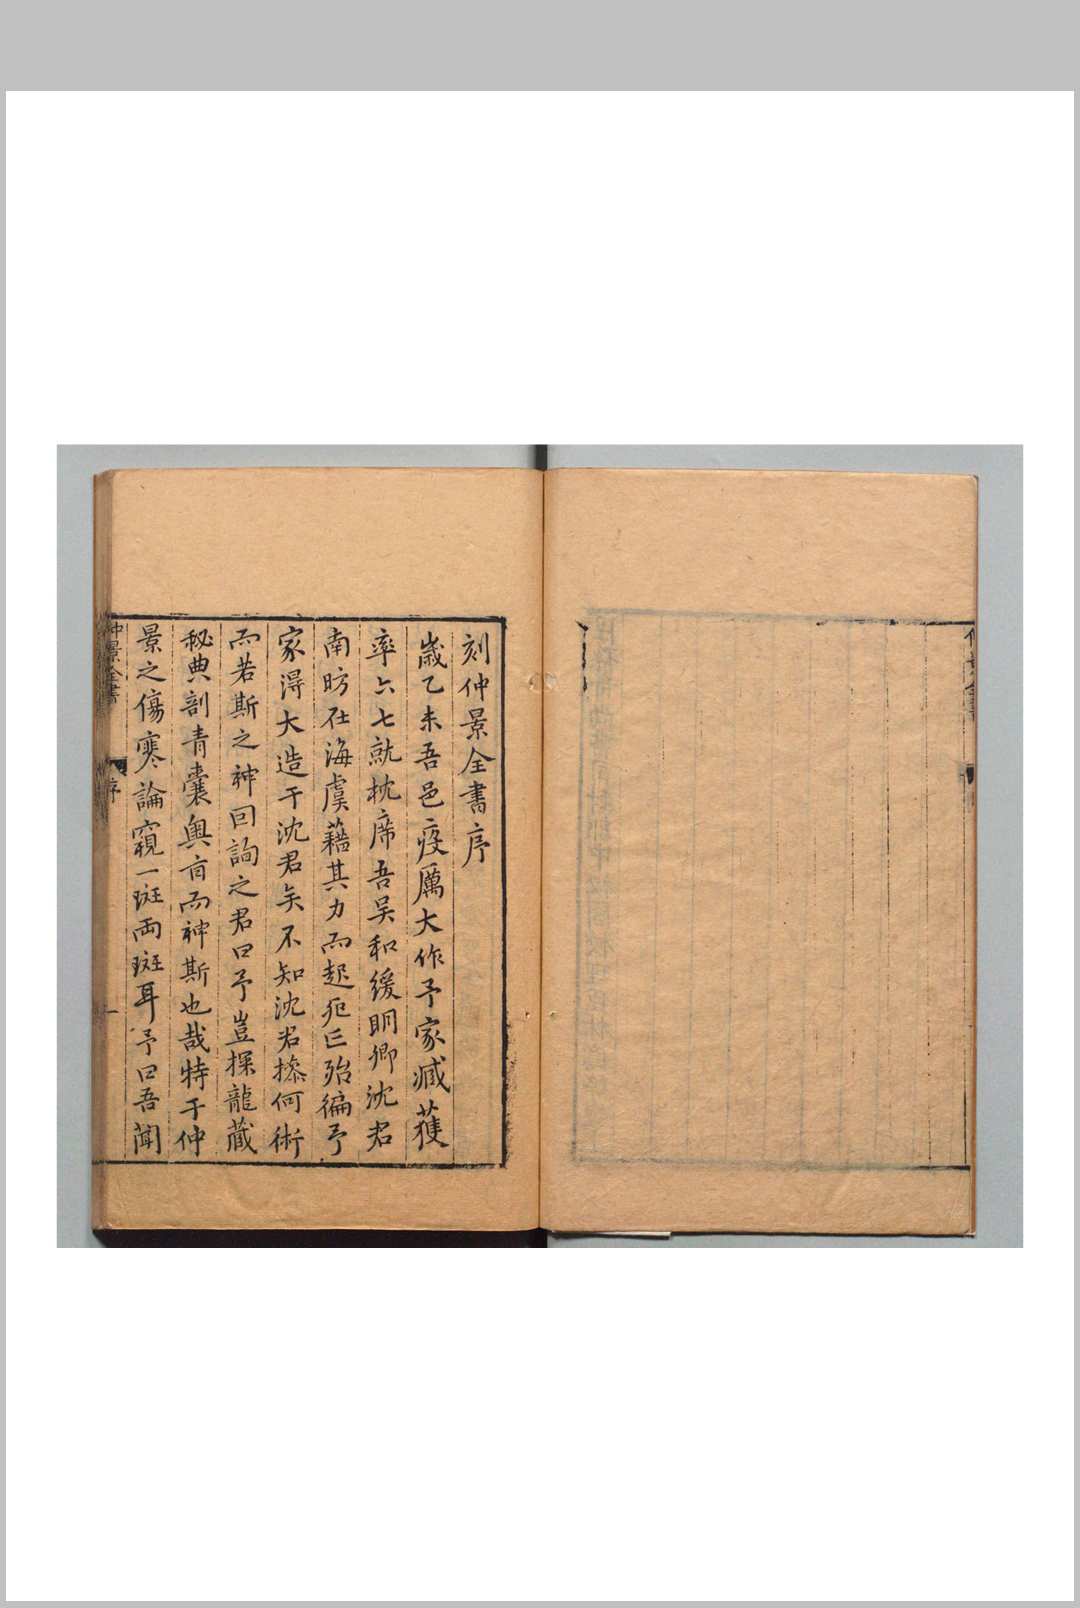 刻仲景全書序
歲乙未吾邑疫厲大作予家臧獲
率六七就枕席吾吳和緩明卿沈君
南昉在海虞藉其力而起死亡殆徧予
家得大造于沈君矣不知沈君操何術
而若斯之神囙詢之君曰予豈探龍藏
秘典剖青囊奧旨而神斯也哉特于仲
景之傷寒論窺一斑兩斑耳予曰吾聞
仲景全書
序
一